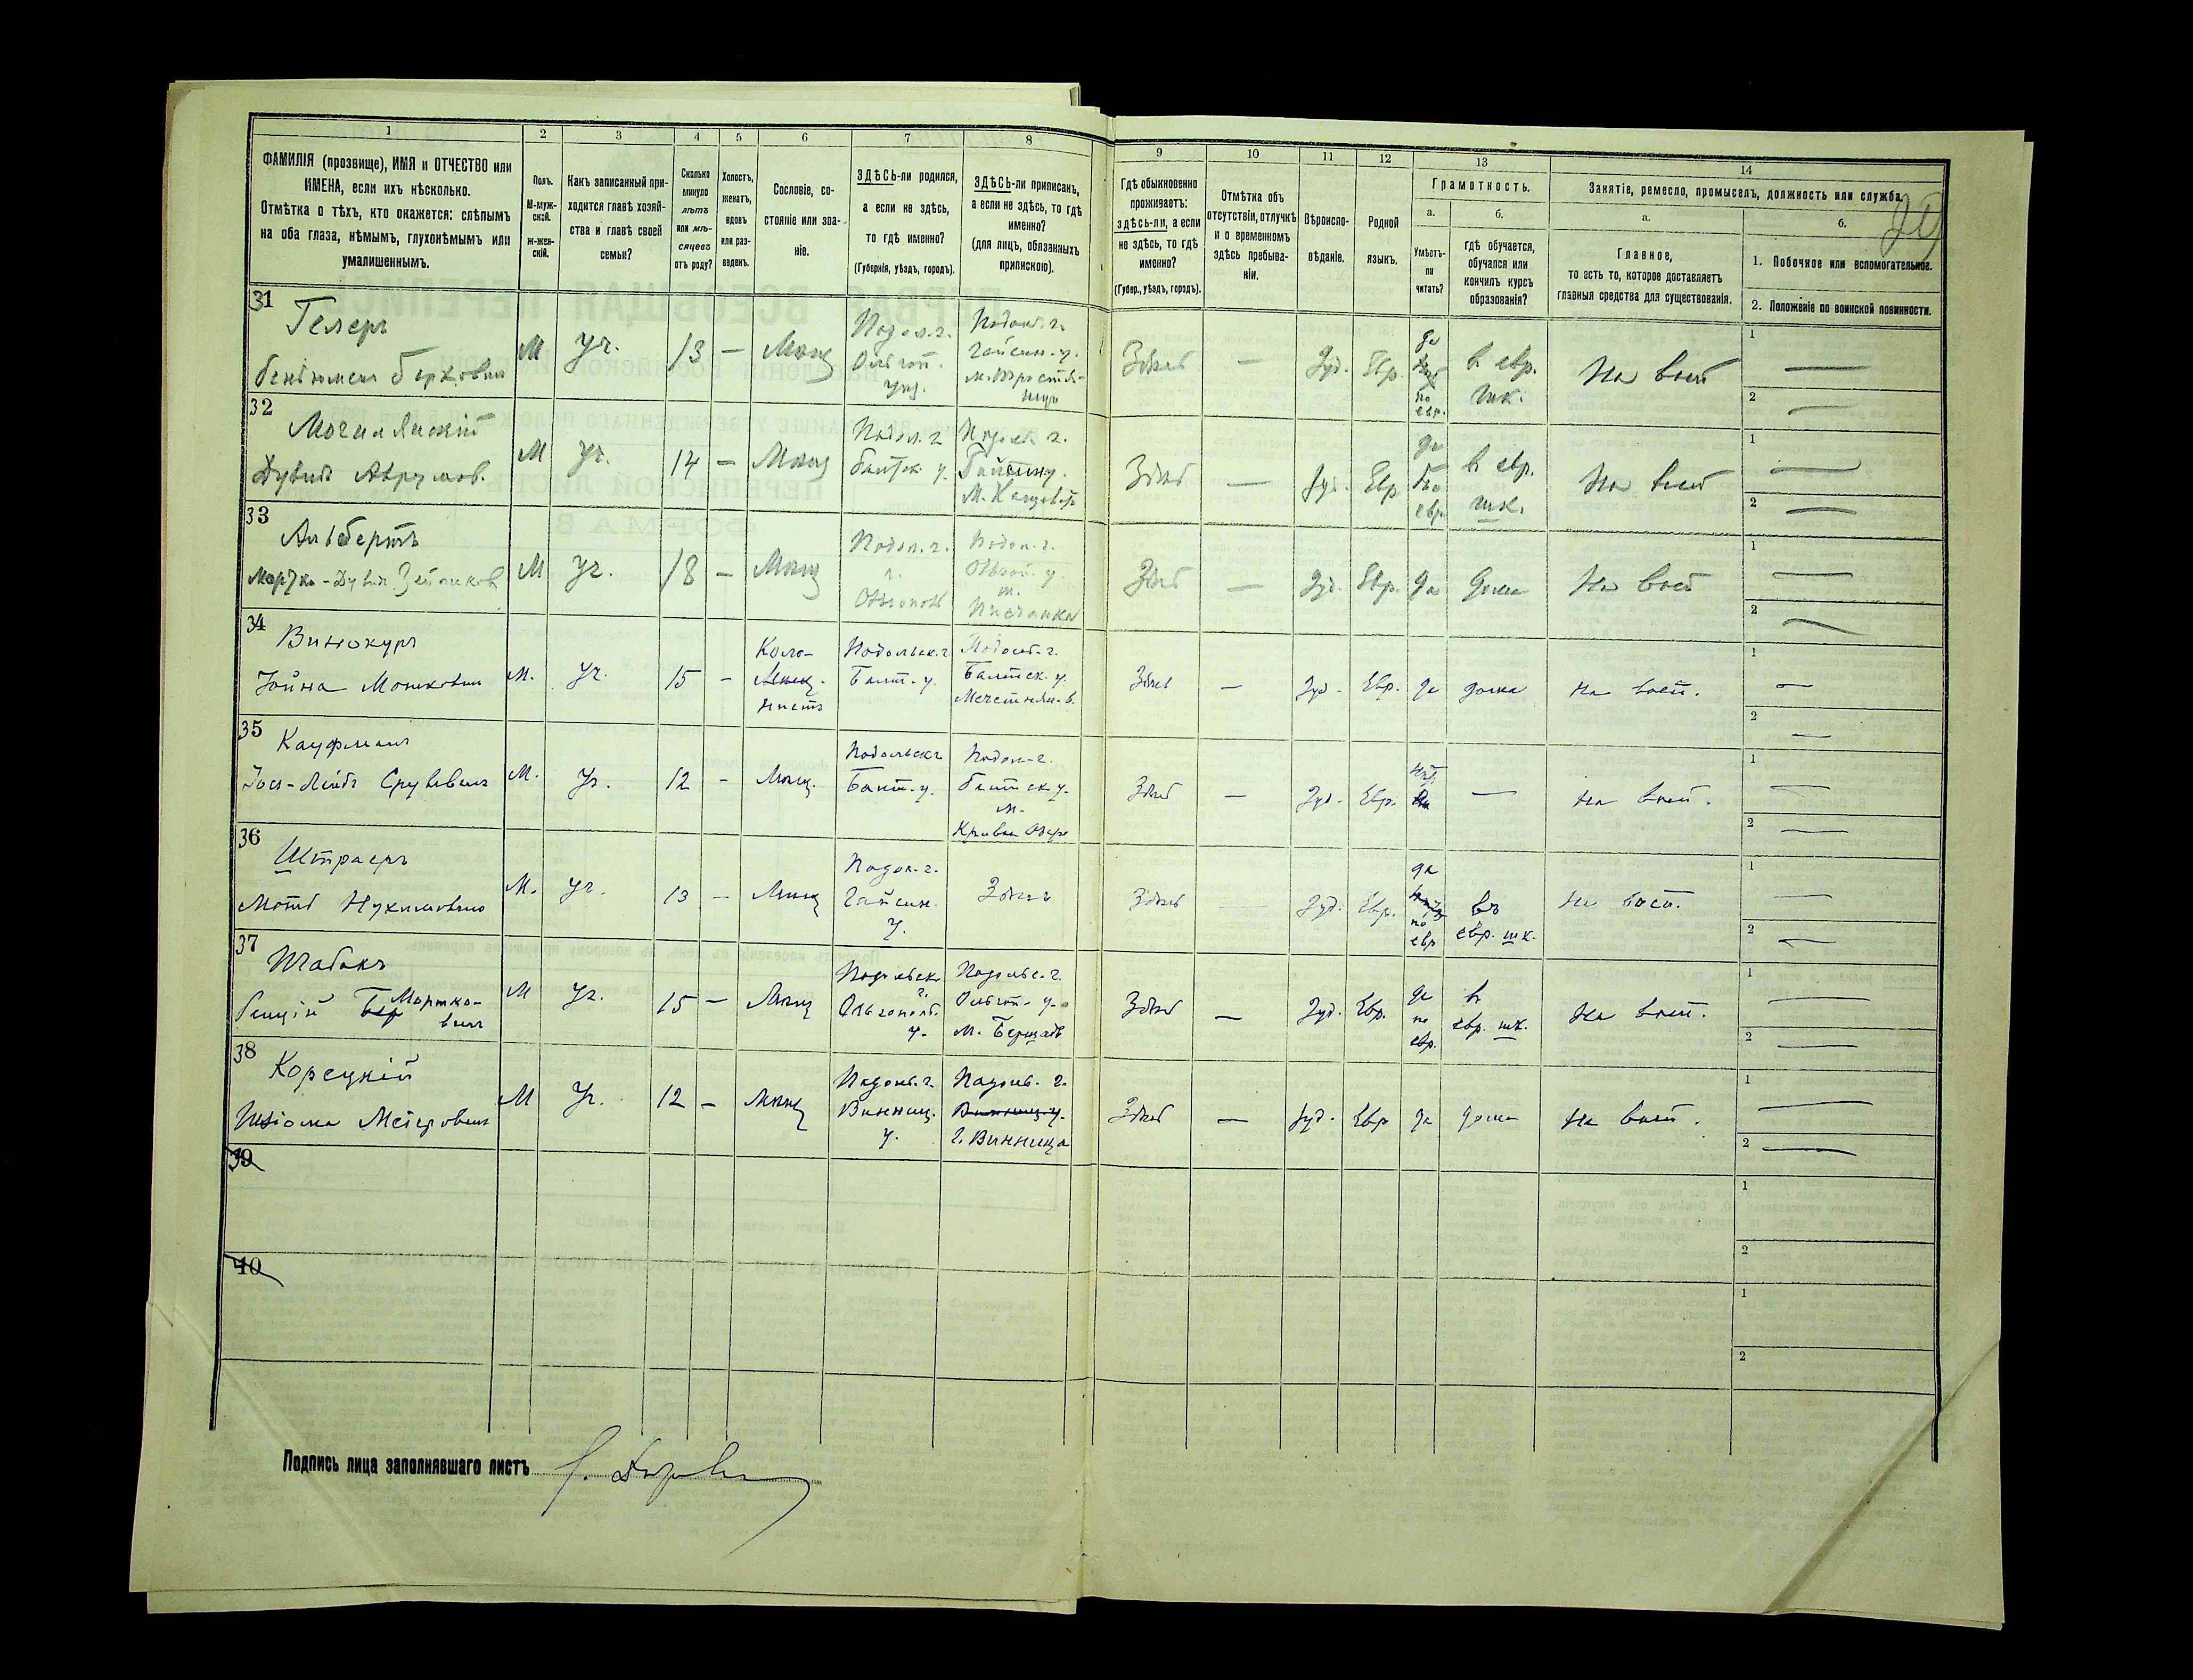 1 2 3 4 5 6 7 8 9 10 11 12 13 14
ФАМИЛІЯ (прозвище), ИМЯ и ОТЧЕСТВО или
ИМЕНА, если ихъ нѣсколько.
Отмѣтка о тѣхъ, кто окажется: слѣпымъ
на оба глаза, нѣмымъ, глухонѣмымъ или
умалишеннымъ.
Полъ.
М-муж-
ской.
Ж-жен-
скій.
Какъ записанный при-
ходится главѣ хозяй-
ства и главѣ своей
семьи?
Сколько
минуло
лѣтъ
или мѣ-
сяцевъ
отъ роду?
Холостъ,
женатъ,
вдовъ
или раз-
веденъ.
Сословіе, со-
стояніе или зва-
ніе.
ЗДѢСЬ-ли родился,
а если не здѣсь,
то гдѣ именно?
(Губернія, уѣздъ, городъ).
ЗДѢСЬ-ли приписанъ,
а если не здѣсь, то гдѣ
именно?
(для лицъ, обязанныхъ
припискою).
Гдѣ обыкновенно
проживаетъ:
здѣсь-ли, а если
не здѣсь, то гдѣ
именно?
(Губер., уѣздъ, городъ).
Отмѣтка объ
отсутствіи, отлучкѣ
и о временномъ
здѣсь пребыва-
ніи.
Вѣроиспо-
вѣданіе.
Родной
языкъ.
Грамотность.
а.
Умѣетъ-
ли
читать?
б.
гдѣ обучается,
обучался или
кончилъ курсъ
образованія?
Занятіе, ремесло, промыселъ, должность или служба.
а.
Главное,
то есть то, которое доставляетъ
главныя средства для существованія.
б.
1. Побочное или вспомогательное.
2. Положеніе по воинской повинности.
31
Геллеръ
Беніюмен Берковичъ
М Уч. 13 — Мѣщ
Подол. г.
Ольгоп.
уѣз.
Подол. г.
Гайсин. у.
Здѣсь — Іуд. Евр.
да
по
евр.
в евр.
шк.
На восп
1 —
2 —
32
Могилянскій
Дувидъ Аврумов.
М Уч. 14 — Мѣщ
Подол. г.
Балтск. у.
Подольск г.
Гайсин у.
Здѣсь — Іуд. Евр
да
по
евр.
в евр.
шк.
На восп
1 —
2 —
33
Альбертъ
М Уч. 18 — Мѣщ
Подол. г.
г.
Ольгополь
Подол. г.
Ольгоп. у.
м.
Песчанка
Здѣсь Іуд. Евр. да дома На восп
1 —
2 —
34
Винокуръ
Іойна Мошковичъ
М. Уч. 15 —
Коло-
нистъ
Подольск. г.
Балт. у.
Подольск. г.
Балтск. у.
Здѣсь — Іуд. Евр. да дома На восп.
1 —
2 —
35
Кауфманъ
Іос-Лейбъ Срулевичъ
М. Уч. 12 — Мѣщ.
Подольск г
Балт. у.
Подол. г.
Балтск у.
м.
Кривое Озеро
Здѣсь — Іуд. Евр. нѣтъ — На восп.
1 —
2 —
36
М. Уч. 13 — Мѣщ
Подол. г.
Гайсин.
у.
Здѣсь
Здѣсь — Іуд. Евр.
да
по
евр
въ
евр. шк.
На восп.
1 —
2 —
37
М Уч. 15 — Мѣщ
Подольск
г.
Ольгопол.
у.
Подольс. г.
Ольгоп. у.
М. Бершадь
Здѣсь — Іуд. Евр.
да
по
евр.
в
евр. шк.
На восп.
1 —
2 —
38
Корецкій
Шлома Меіеровичъ
М Уч. 12 — Мѣщ
Подол. г.
Винниц.
у.
Подоль. г.
Винниц. у.
г. Винница
Здѣсь — Іуд. Евр да дома На восп.
1 —
2 —
39
1
2
40
1
2
Подпись лица заполнявшаго листъ